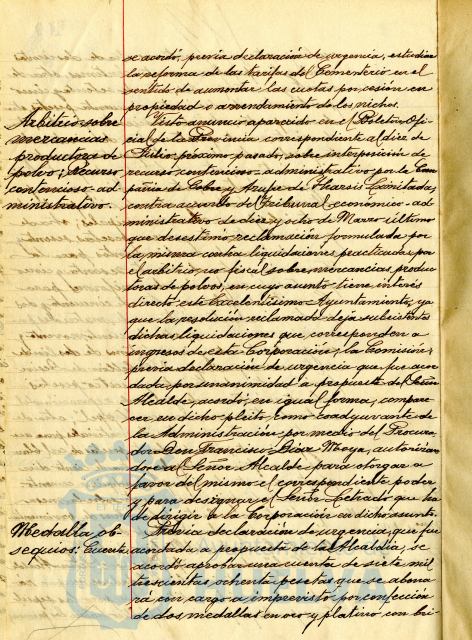 se acordó, previa declaración de urgencia, estudiar
la reforma de las tarifas del Cementerio en el
sentido de aumentar las cuotas por cesión en
propiedad o arrendamiento de los nichos.
Arbitrio sobre
mercancías
productoras de
polvo; Recurso
contencioso-ad-
ministrativo.
Visto anuncio aparecido en el Boletín Ofi-
cial de la Provincia correspondiente al diez de
Julio próximo pasado, sobre interposición de
recurso contencioso-administrativo, por la Com-
pañía de Cobre y Azufre de Tharsis Limitada,
contra acuerdo del Tribunal económico-ad-
ministrativo de diez y ocho de Marzo último
que desestimó reclamación formulada por
la misma contra liquidaciones practicadas por
el arbitrio no fiscal sobre mercancías produc-
toras de polvos, en cuyo asunto tiene interés
directo este Excelentísimo Ayuntamiento, ya
que la resolución reclamada deja subsistentes
dichas liquidaciones que corresponden a
ingresos de esta Corporación, la Comisión,
previa declaración de urgencia que fue acor-
dada por unanimidad a propuesta del Señor
Alcalde, acordó, en igual forma, compare-
cer en dicho pleito como coadyuvante de
la Administración por medio del Procura-
dor Don Francisco Díaz autorizan-
do al Señor Alcalde para otorgar a
favor del mismo el correspondiente poder
y para designar el Señor Letrado que ha
de dirigir a la Corporación en dicho asunto.
Medalla ob-
sequios: Cuenta
Previa declaración de urgencia, que fue
acordada a propuesta de la Alcaldía, se
acordó aprobar una cuenta de siete mil
trescientas ochenta pesetas que se abona-
rá con cargo a imprevisto por confección
de dos medallas en oro y platino con bri-